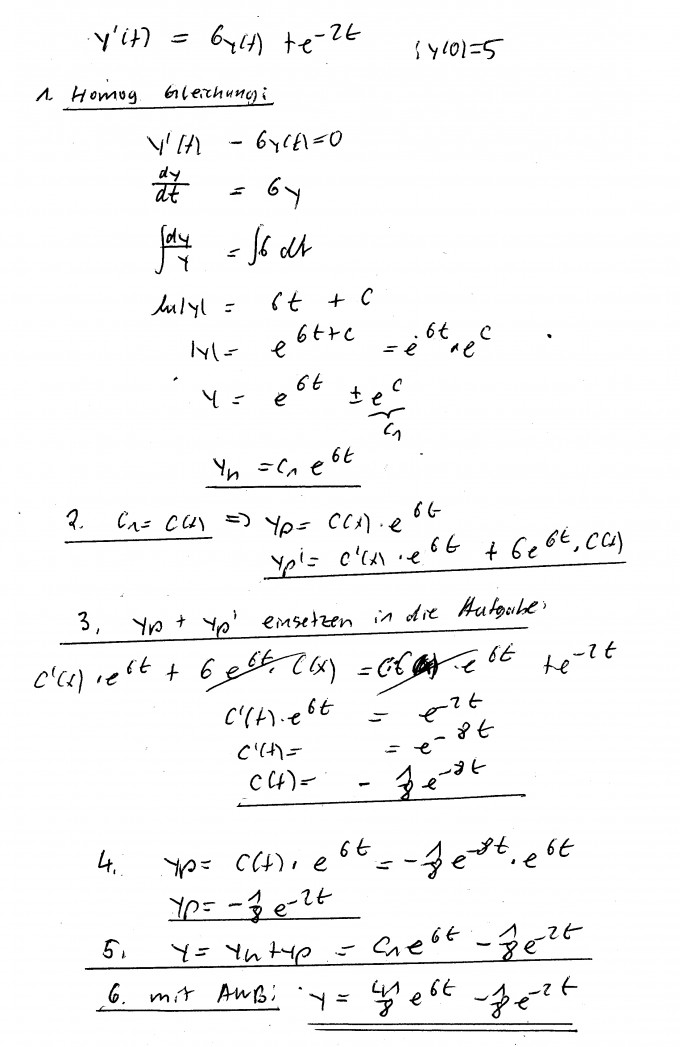 y'(t) = 6y(t) + e^-2t ; y(0)=5
1 Homog Gleichung:
y'(t) - 6y(t)=0
dy/dt = 6y
∫dy/y = ∫6 dt
ln|y| = 6t + C
|y| = e^6t+C = e^6t · e^C
y = e^6t ± e^C
C1
yh = C1 e^6t
2. C1 = C(x) => yp = C(x) · e^6t
yp' = C'(x) · e^6t + 6e^6t · C(x)
3, yp + yp' einsetzen in die Aufgabe:
C'(x) · e^6t + 6 e^6t · C(x) = · e^6t + e^-2t
C'(t) · e^6t = e^-2t
C'(t) = = e^-8t
C(t) = - 1/8 e^-8t
4. yp = C(t) · e^6t = - 1/8 e^-8t · e^6t
yp = - 1/8 e^-2t
5. y = yh + yp = C1 e^6t - 1/8 e^-2t
6. mit AWB: y = 41/8 e^6t - 1/8 e^-2t